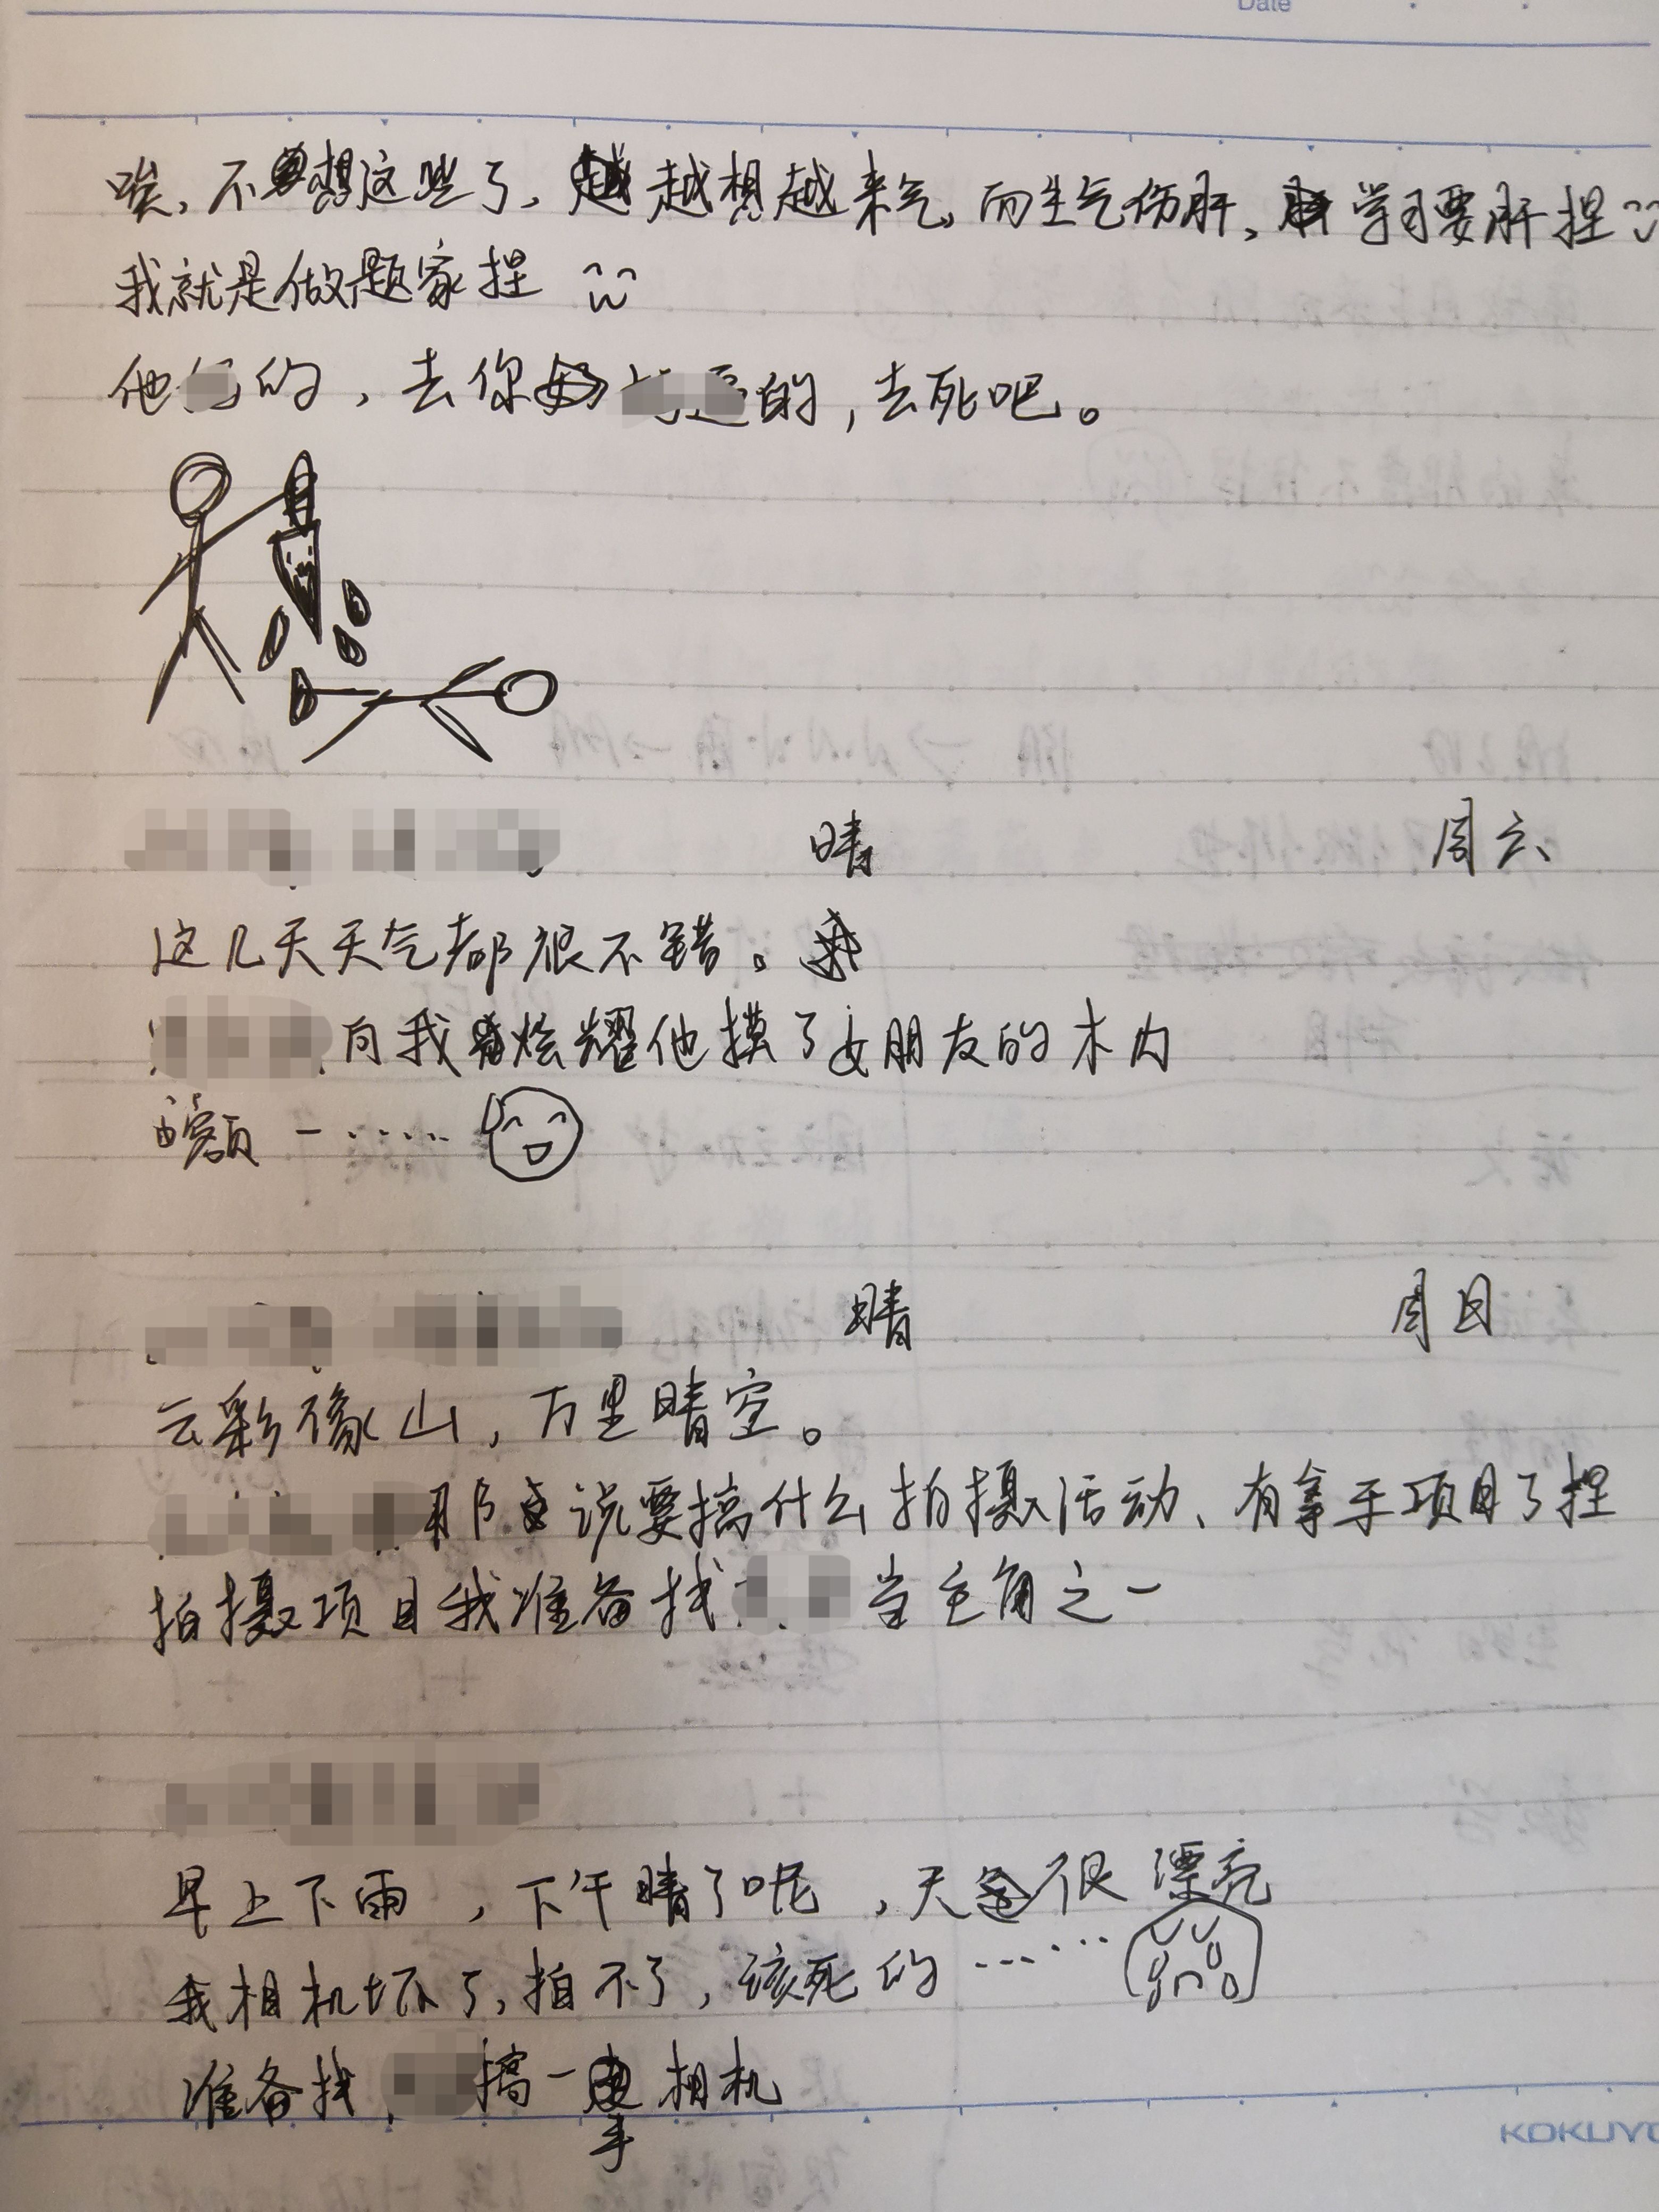 Date
唉，不想这些了，越想越来气，而生气伤肝，学习要肝捏
我就是做题家捏
他 的，去你 的，去死吧。
晴 周六
这几天天气都很不错。
向我炫耀他摸了女朋友的木内
额一……
晴 周日
云彩像山，万里晴空。
那边说要搞什么拍摄活动、有拿手项目了捏
拍摄项目我准备找 当主角之一
早上下雨，下午晴了呢，天色很漂亮
我相机坏了，拍不了，该死的……
准备找 搞一手相机
KOKUYO